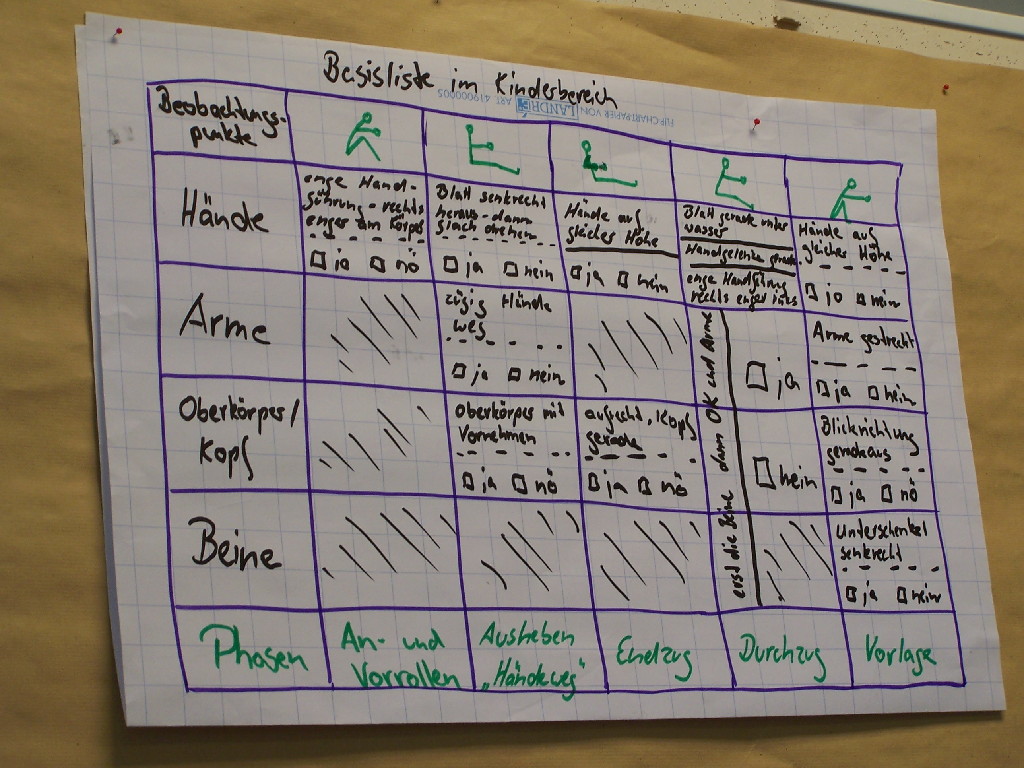 Basisliste im Kinderbereich
FLIPCHARTPAPER VON LANDRÉ ART. 419000005
Beobachtungs-
punkte
Hände
enge Hand-
führung - rechts
enger am Körper
ja nö
Blatt senkrecht
heraus - dann
flach drehen
ja nein
Hände auf
gleicher Höhe
ja nein
Blatt gerade unter
wasser
Handgelenke gerade
enge Handführung
rechts enger links
Hände auf
gleicher Höhe
ja nein
Arme
zügig Hände
weg
ja nein
erst die Beine dann OK und Arme
ja
nein
Arme gestreckt
ja nein
Oberkörper/
Kopf
Oberkörper mit
Vornehmen
ja nö
aufrecht, Kopf
gerade
ja nö
Blickrichtung
geradeaus
ja nö
Beine
Unterschenkel
senkrecht
ja nein
Phasen
An- und
Vorrollen
Ausheben
„Händeweg"
Endzug
Durchzug
Vorlage